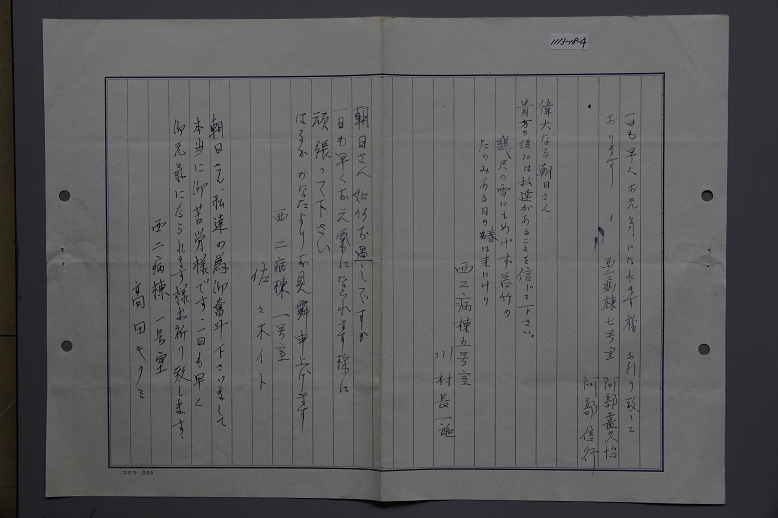 1113-18-4
一日も早くお元気になられます様 お祈り致して
おります
西二病棟七号室 阿部嘉久治
阿部信行
偉大なる朝日さん、
貴方の後には私達があることを信じて下さい。
幾尺の雪にもめげず若竹の
たのみある日の春は来にけり
西二病棟五号室
川村長一
朝日さん 如何お過しですか
一日も早くお元氣になられます様に
頑張って下さい
はるかかなたよりお見舞申上げます
西二病棟 一号室
佐々木イト
朝日さん、私達の為御奮斗下さいまして
本当に御苦労様です 一日も早く
御元氣になられます様お祈り致します、
西二病棟 一号室
高田キクミ
コクヨ 255